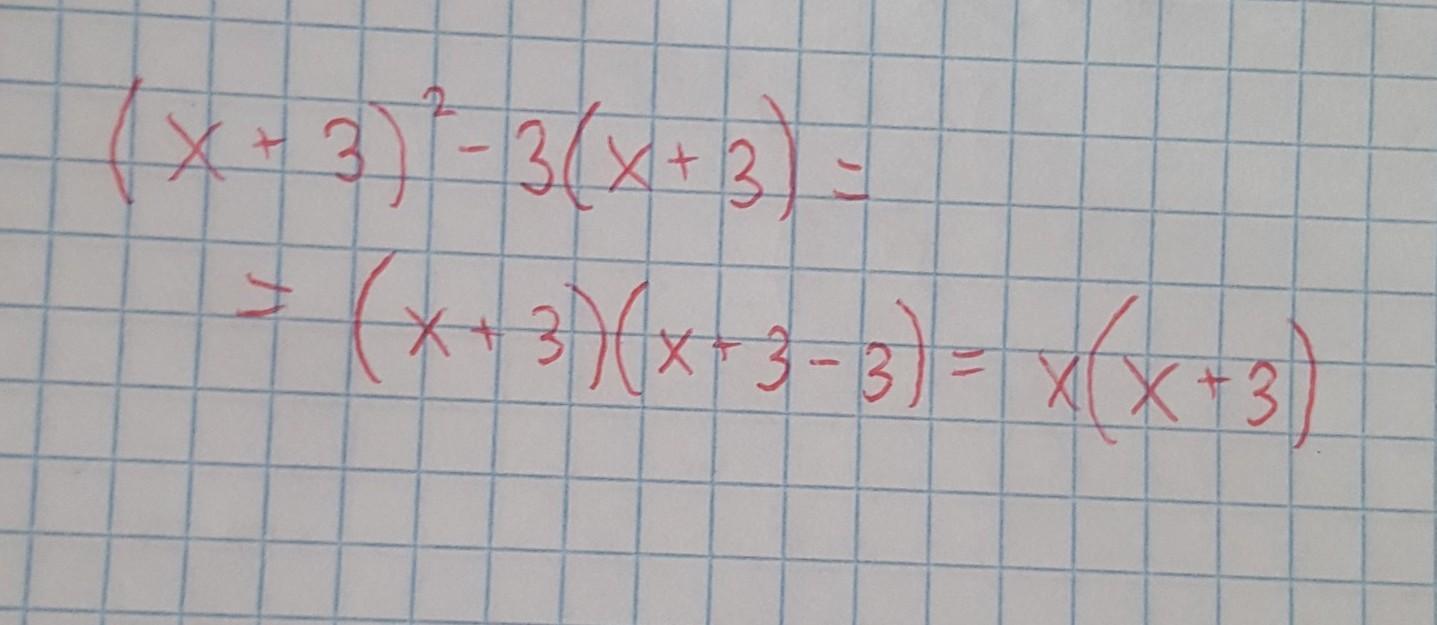 (x + 3)² - 3(x + 3) =
= (x + 3)(x + 3 - 3) = x(x + 3)